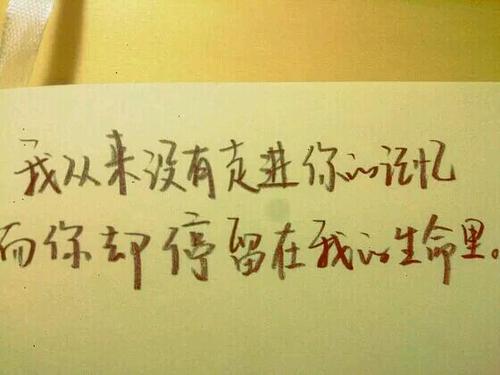 我从来没有走进你的记忆
而你却停留在我的生命里。